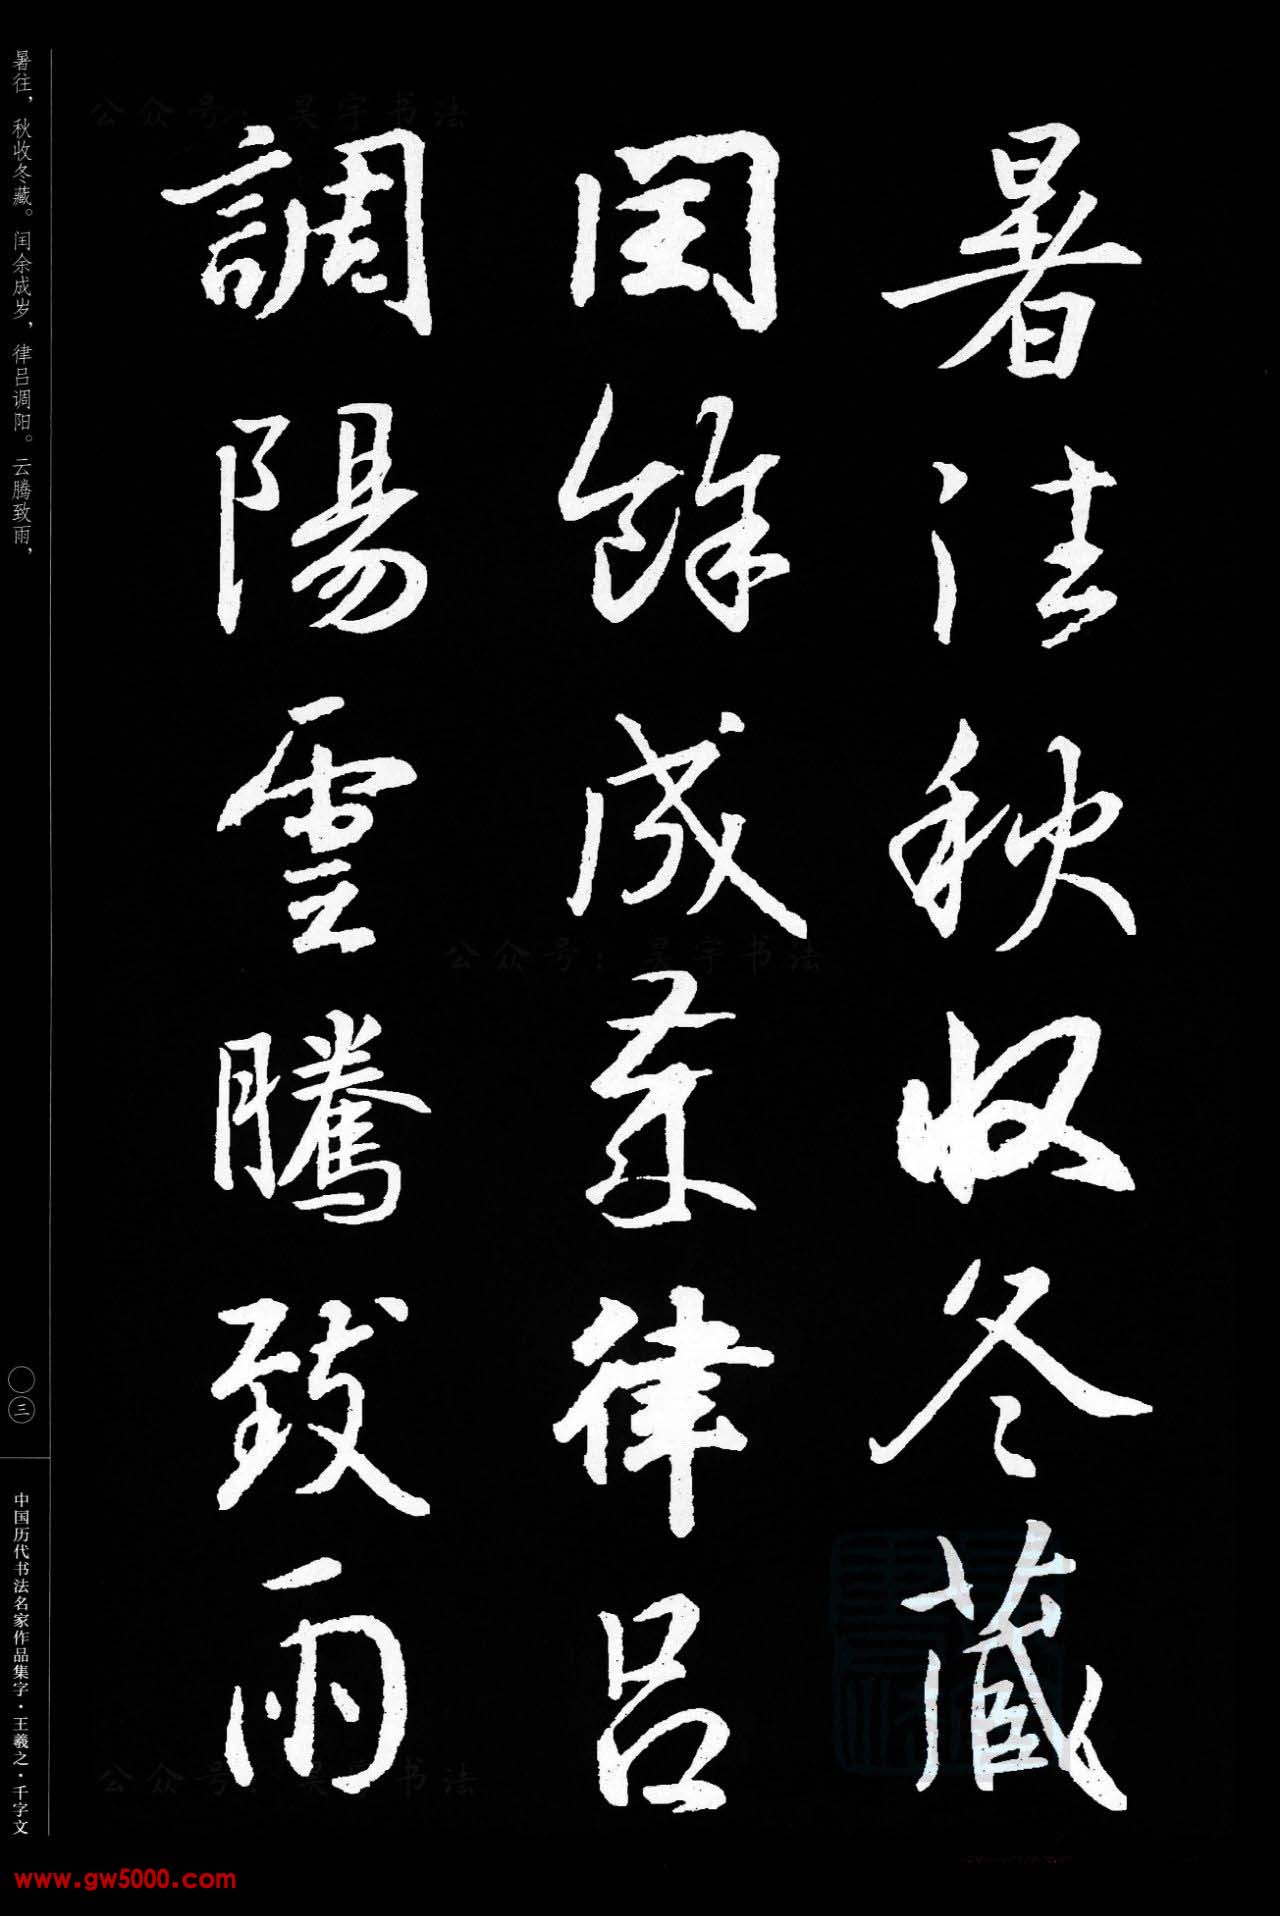 暑往秋收冬藏
閏餘成歲律呂
調陽雲騰致雨
暑往，秋收冬藏。闰余成岁，律吕调阳。云腾致雨，
〇三
中国历代书法名家作品集字·王羲之·千字文
公众号：昊宇书法
公众号：昊宇书法
公众号：昊宇书法
www.gw5000.com